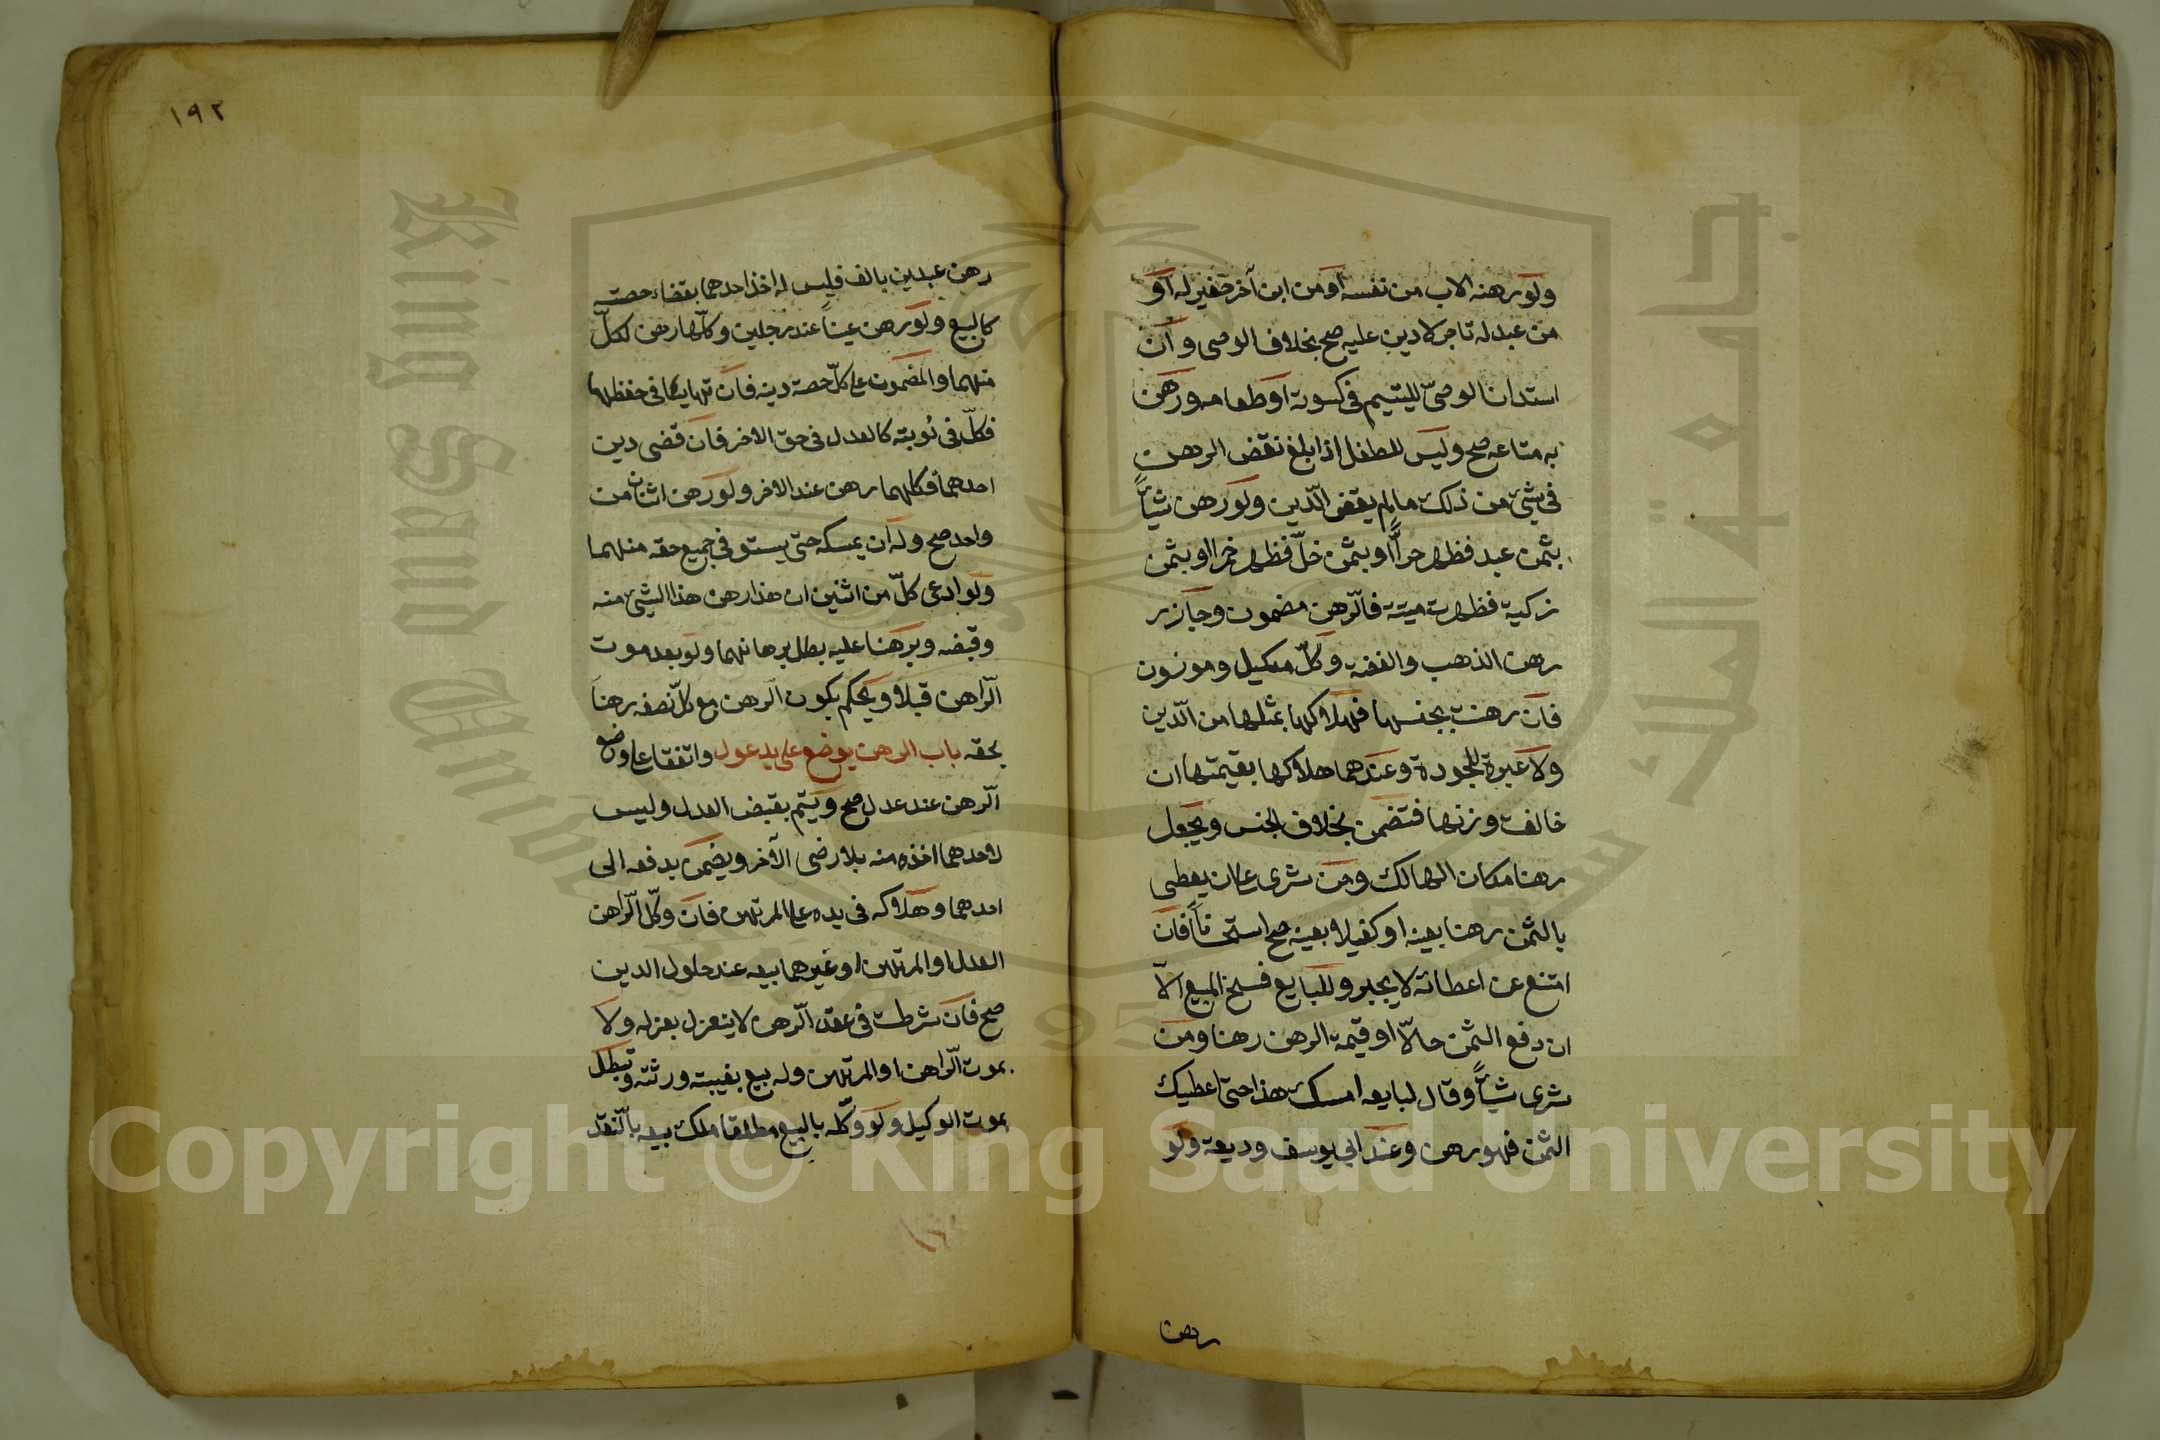 ولو رهنه الاب من نفسه او من ابن آخر صغير له او
من عبد له تاجر لا دين عليه صح بخلاف الوصى وان
استدان الوصىّ لليتيم فى كسوته او طعامه ورهن
به متاعه صح وليس للطفل اذا بلغ نقض الرهن
فى شئ من ذلك ما لم يقض الّدين ولو رهن شيأً
بثمن عبد فظهر حراًّ او بثمن خلّ فظهر خمرا او بثمن
زكية فظهرت ميتة فالّرهن مضمون وجاز
رهن الذهب والفضة وكلّ مكيل وموزون
فان رهنت بجنسها فهلاكها بمثلها من الّدين
ولا عبرة للجودة وعندهما هلاكها بقيمتها ان
خالفت وزنها فتضمن بخلاف الجنس ويجعل
رهنا مكان الهالك ومن شرى على ان يعطى
بالثمن رهنا بعينه او كفيلا بعينه صح استحساناً فان
امتنع عن اعطائه لا يجبر وللبايع فسخ البيع الاّ
ان دفع الثمن حالاّ او قيمة الرهن رهنا ومن
شرى شيأً وقال لبايعه امسك هذا حتى اعطيك
الثمن فهو رهن وعند ابى يوسف وديعة ولو
رهن
١٩٢
رهن عبدين بالف فليس له اخذ احدهما بقضاء حصته
كالبيع ولو رهن عيناً عند رجلين وكلّها رهن لكلّ
منهما والمضمون على كلّ حصة دينه فان تهايئا فى حفظها
فكلّ فى نوبته كالعدل فى حق الاخر فان قضى دين
احدهما فكلها رهن عند الاخر ولو رهن اثنان من
واحد صح وله ان يمسكه حتى يستوفى جميع حقه منهما
ولو ادعى كلّ من اثنين ان هذا رهن هذا الشئ منه
وقبضه وبرهنا عليه بطل برهانهما ولو بعد موت
الّراهن قبلا ويحكم بكون الّرهن مع كلّ نصفه رهناً
بحقه باب الرهن يوضع على يد عدول واتفقا على وضع
الّرهن عند عدل صح ويتم بقبض العدل وليس
لاحدهما اخذه منه بلا رضى الآخر ويضمن بدفعه الى
احدهما وهلاكه فى يده على المرتهن فان وكّل الّراهن
العدل او المرتهن او غيرهما ببيعه عند حلول الدين
صح فان شرطت فى عقد الّرهن لا ينعزل بعزله ولا
بموت الّراهن او المرتهن وله بيعه بغيبته ورثته وتبطل
بموت الوكيل ولو وكّله بالبيع مطلقا ملك بيعه بالّنقد
Copyright © King Saud University
جامعة الملك سعود
King Saud University
1957